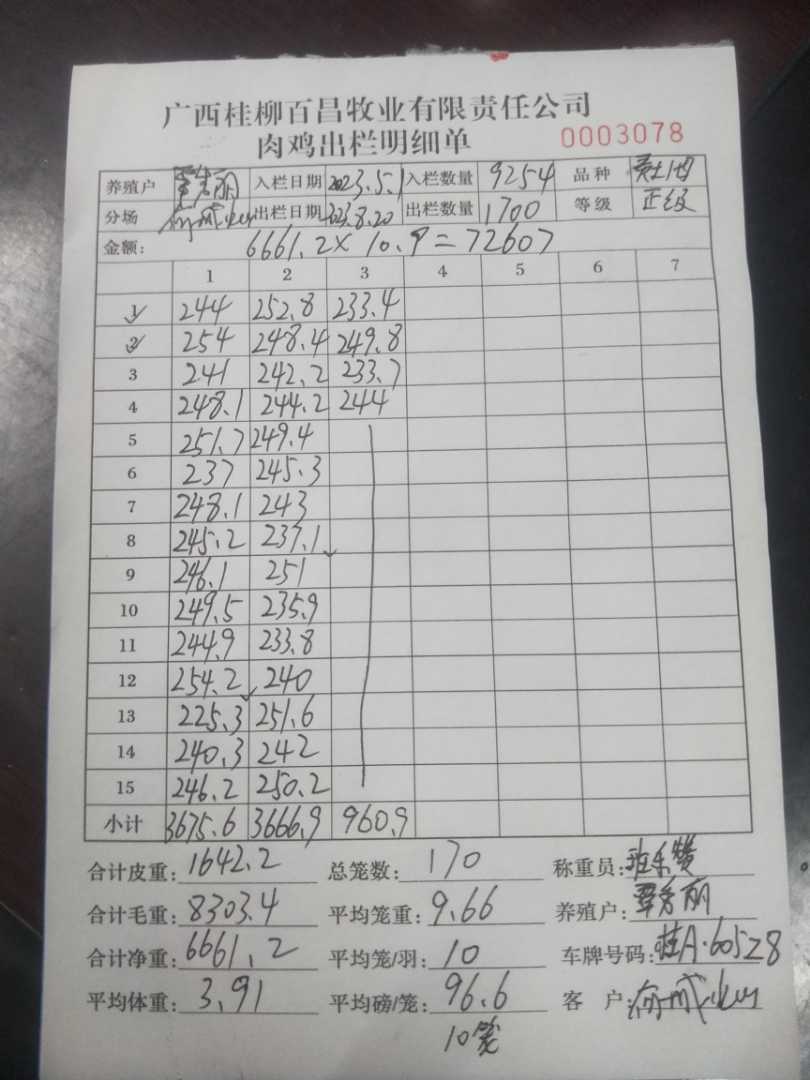 广西桂柳百昌牧业有限责任公司
肉鸡出栏明细单 0003078
养殖户 覃秀丽 入栏日期 2023.5.1 入栏数量 9254 品种
分场 出栏日期 2023.8.20 出栏数量 1700 等级 正级
金额: 6661.2× 10.9=72607
1 2 3 4 5 6 7
1 244 252.8 233.4
2 254 248.4 249.8
3 241 242.2 233.7
4 248.1 244.2 244
5 251.7 249.4
6 237 245.3
7 248.1 243
8 245.2 237.1
9 246.1 251
10 249.5 235.9
11 244.9 233.8
12 254.2 240
13 225.3 251.6
14 240.3 242
15 246.2 250.2
小计 3675.6 3666.9 960.9
合计皮重: 1642.2 总笼数: 170 称重员:
合计毛重: 8303.4 平均笼重: 9.66 养殖户: 覃秀丽
合计净重: 6661.2 平均笼/羽: 10 车牌号码: 桂A·60528
平均体重: 3.91 平均磅/笼: 96.6 客户:
10笼